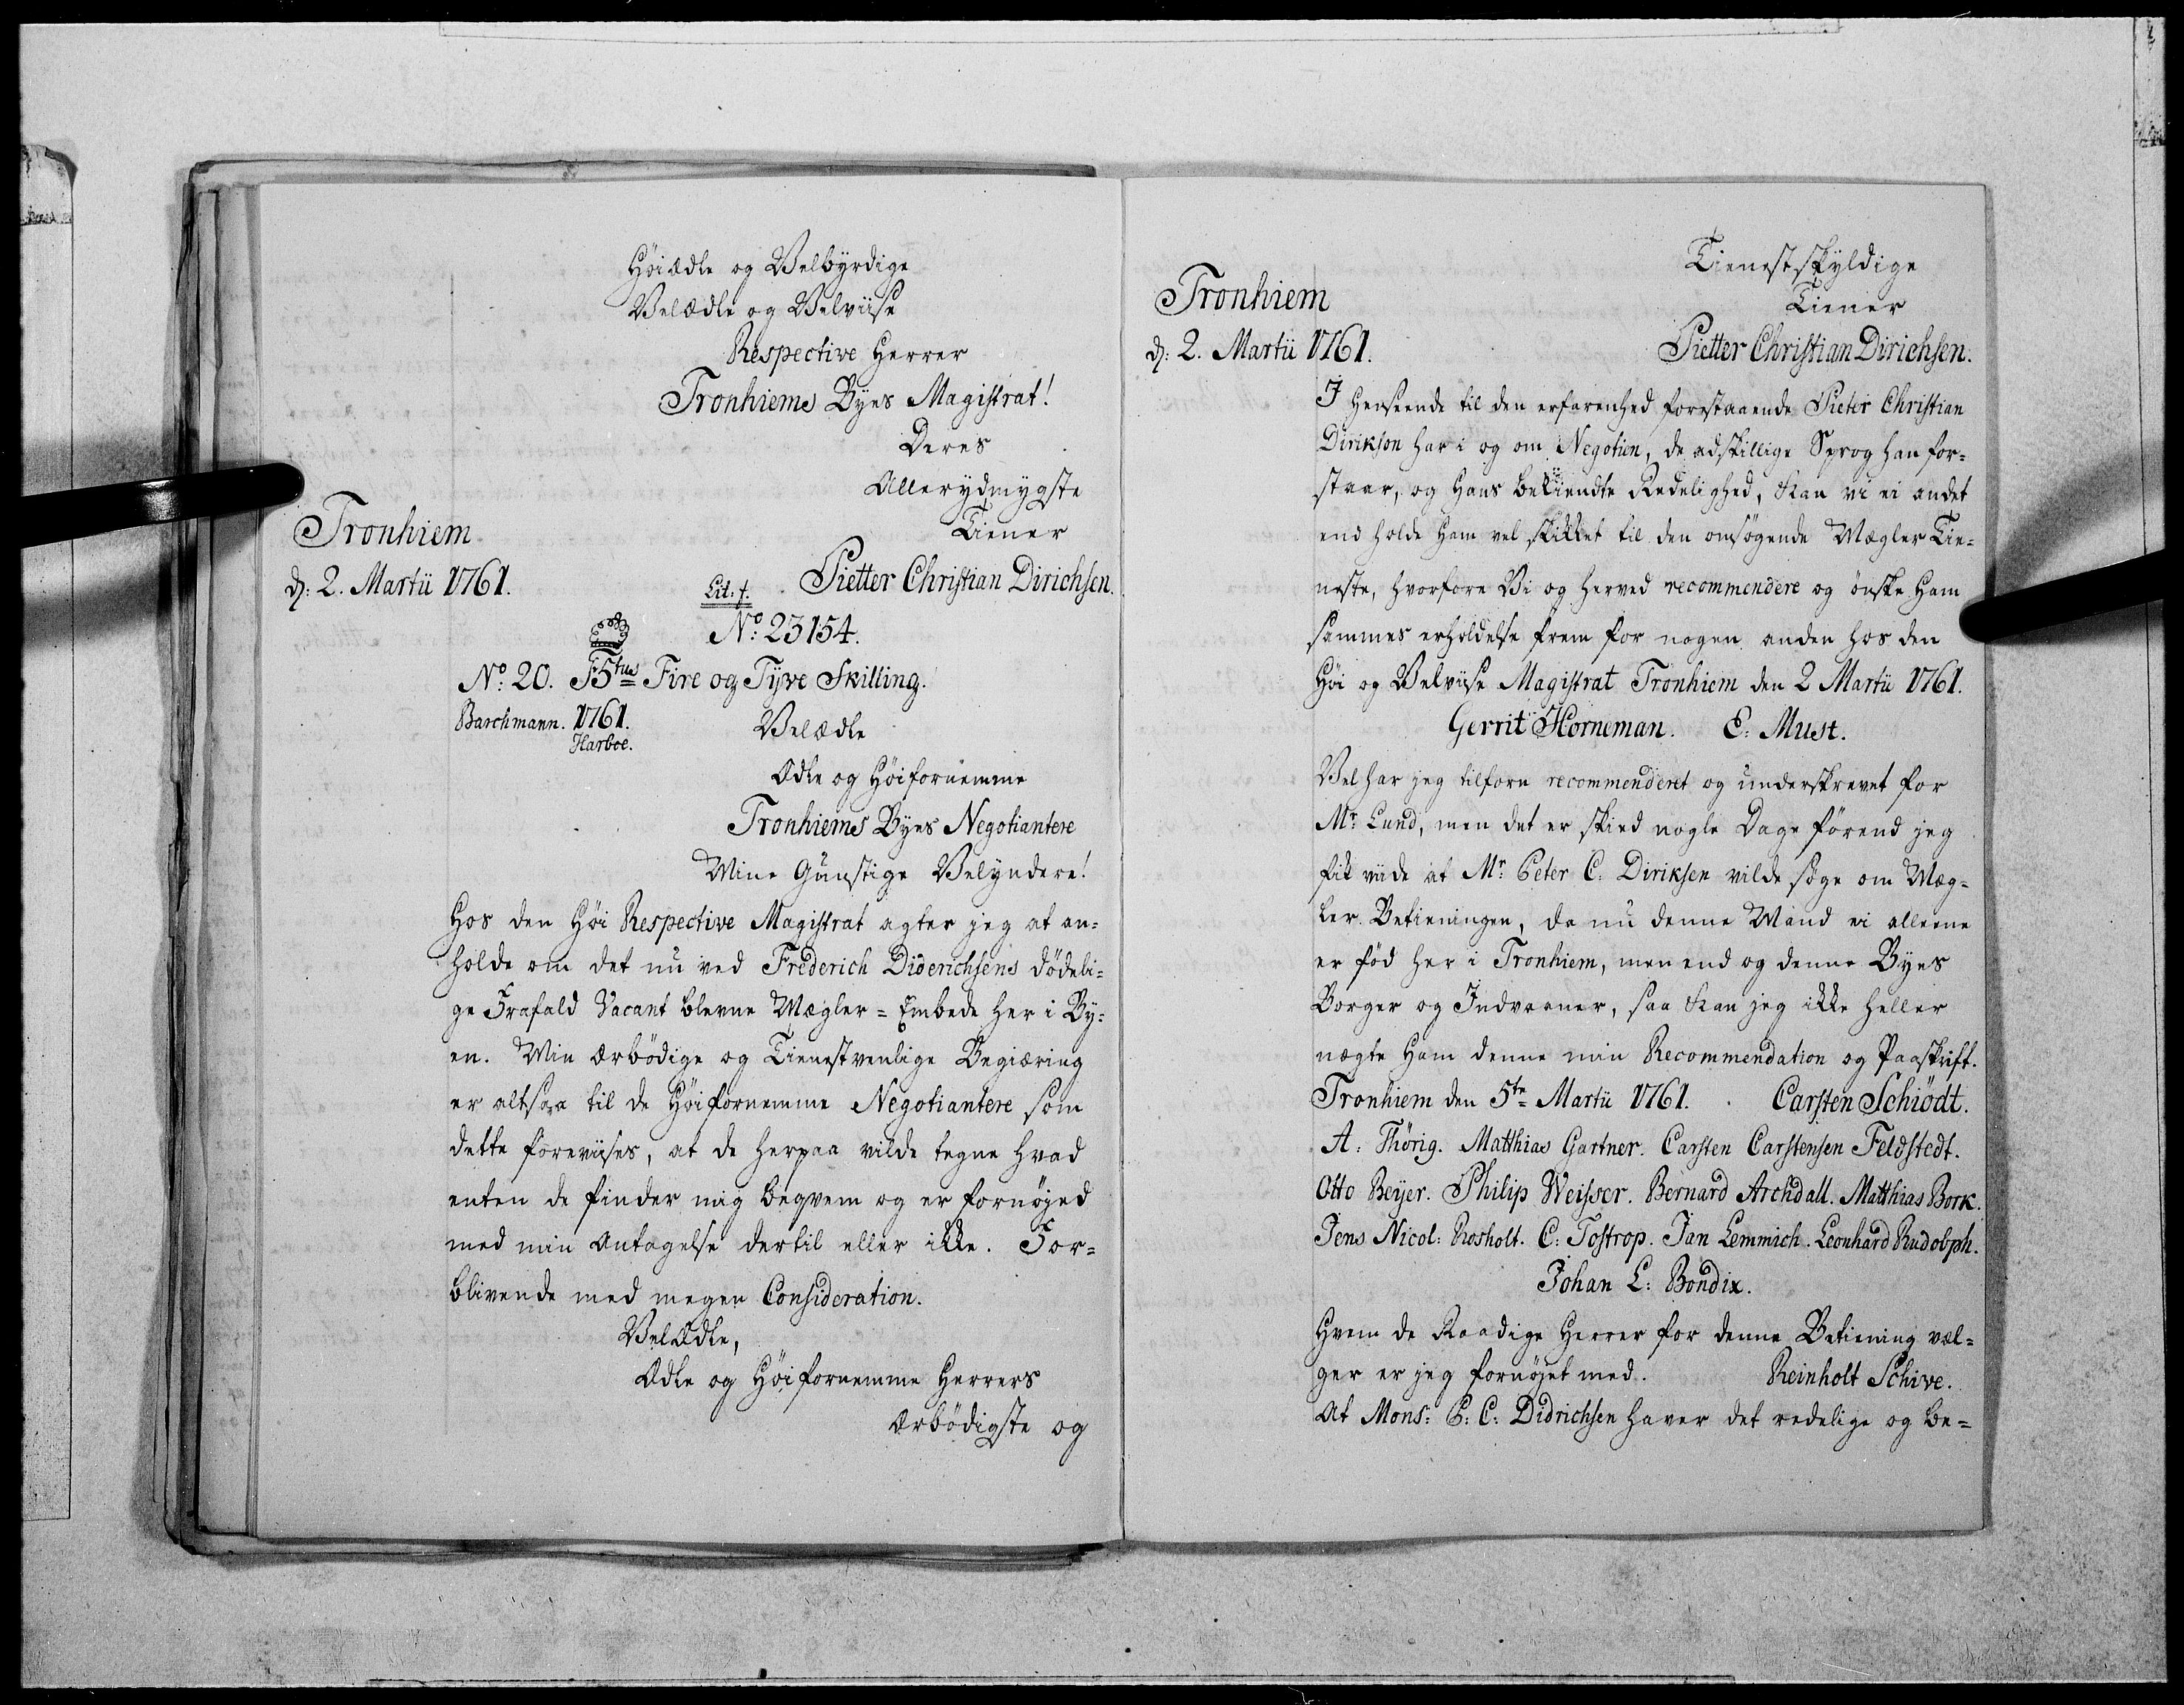 Høiædle og Velbyrdige
Velædle og Velviise
Respective Herrer
Tronhiems Byes Magistrat!
Deres
Allerydmygste
Tiener
Tronhiem
d: 2. Martii 1761.
Pietter Christian Dirichsen.
Lit: f.
No: 23154.
No: 20. F5tus Fire og Tyve Skilling.
Barchmann. 1761.
Harboe.
Velædle
Ædle og Høifornemme
Tronhiems Byes Negotiantere
Mine Gunstige Velyndere!
Hos den Høi Respective Magistrat agter jeg at an-
holde om det nu ved Frederich Diderichsens dödeli-
ge Frafald Vacant blevne Mægler-Embede her i By-
en. Min ærbödige og Tienestvenlige Begiæring
er altsaa til de Høifornemme Negotiantere som
dette foreviises, at de herpaa vilde tegne hvad
enten de finder mig beqvem og er fornøjed
med min Antagelse dertil eller ikke. For-
blivende med megen Consideration.
VelÆdle,
Ædle og Høifornemme Herrers
Ærbödigste og
Tienestskyldige
Tiener
Tronhiem
d: 2. Martii 1761.
Pietter Christian Dirichsen.
I Henseende til den erfarenhed forestaaende Pieter Christian
Dirikson har i og om Negotien, de adskillige Sprog han for-
staar, og Hans bekiendte Redelighed, Kan vi ei andet
end holde Ham vel skikket til den omsøgende Mægler Tie-
neste, hvorfore Vi og herved recommendere og ønske Ham
sammes erholdelse frem for nogen anden hos den
Høi og Velviise Magistrat Tronhiem den 2 Martii 1761.
Gerrit Horneman. E: Must.
Vel har jeg tilforn recommenderet og underskrevet for
Mr: Lund, men det er skied nogle Dage förend jeg
fik viide at Mr: Peter C: Diriksen vilde søge om Mæg-
ler Betieningen, da nu denne Mand ei alleene
er fød her i Tronhiem, men end og denne Byes
Borger og Indvaaner, saa Kan jeg ikke heller
nægte Ham denne min Recommendation og Paaskrift.
Tronhiem den 5te Martii 1761. Carsten Schiödt.
A: Thörig. Matthias Gartner. Carsten Carstensen Feldstedt.
Otto Beyer. Philip Weisser. Bernard Archdall. Matthias Bork.
Jens Nicol: Rosholt. C: Tostrop. Jan Lemmich. Leonhard Rudolph.
Johan L: Bondix.
Hvem de Raadige Herrer for denne Betiening væl-
ger er jeg fornøjet med. Reinholt Schive.
At Mons: P: C: Didrichsen haver det redelige og be-